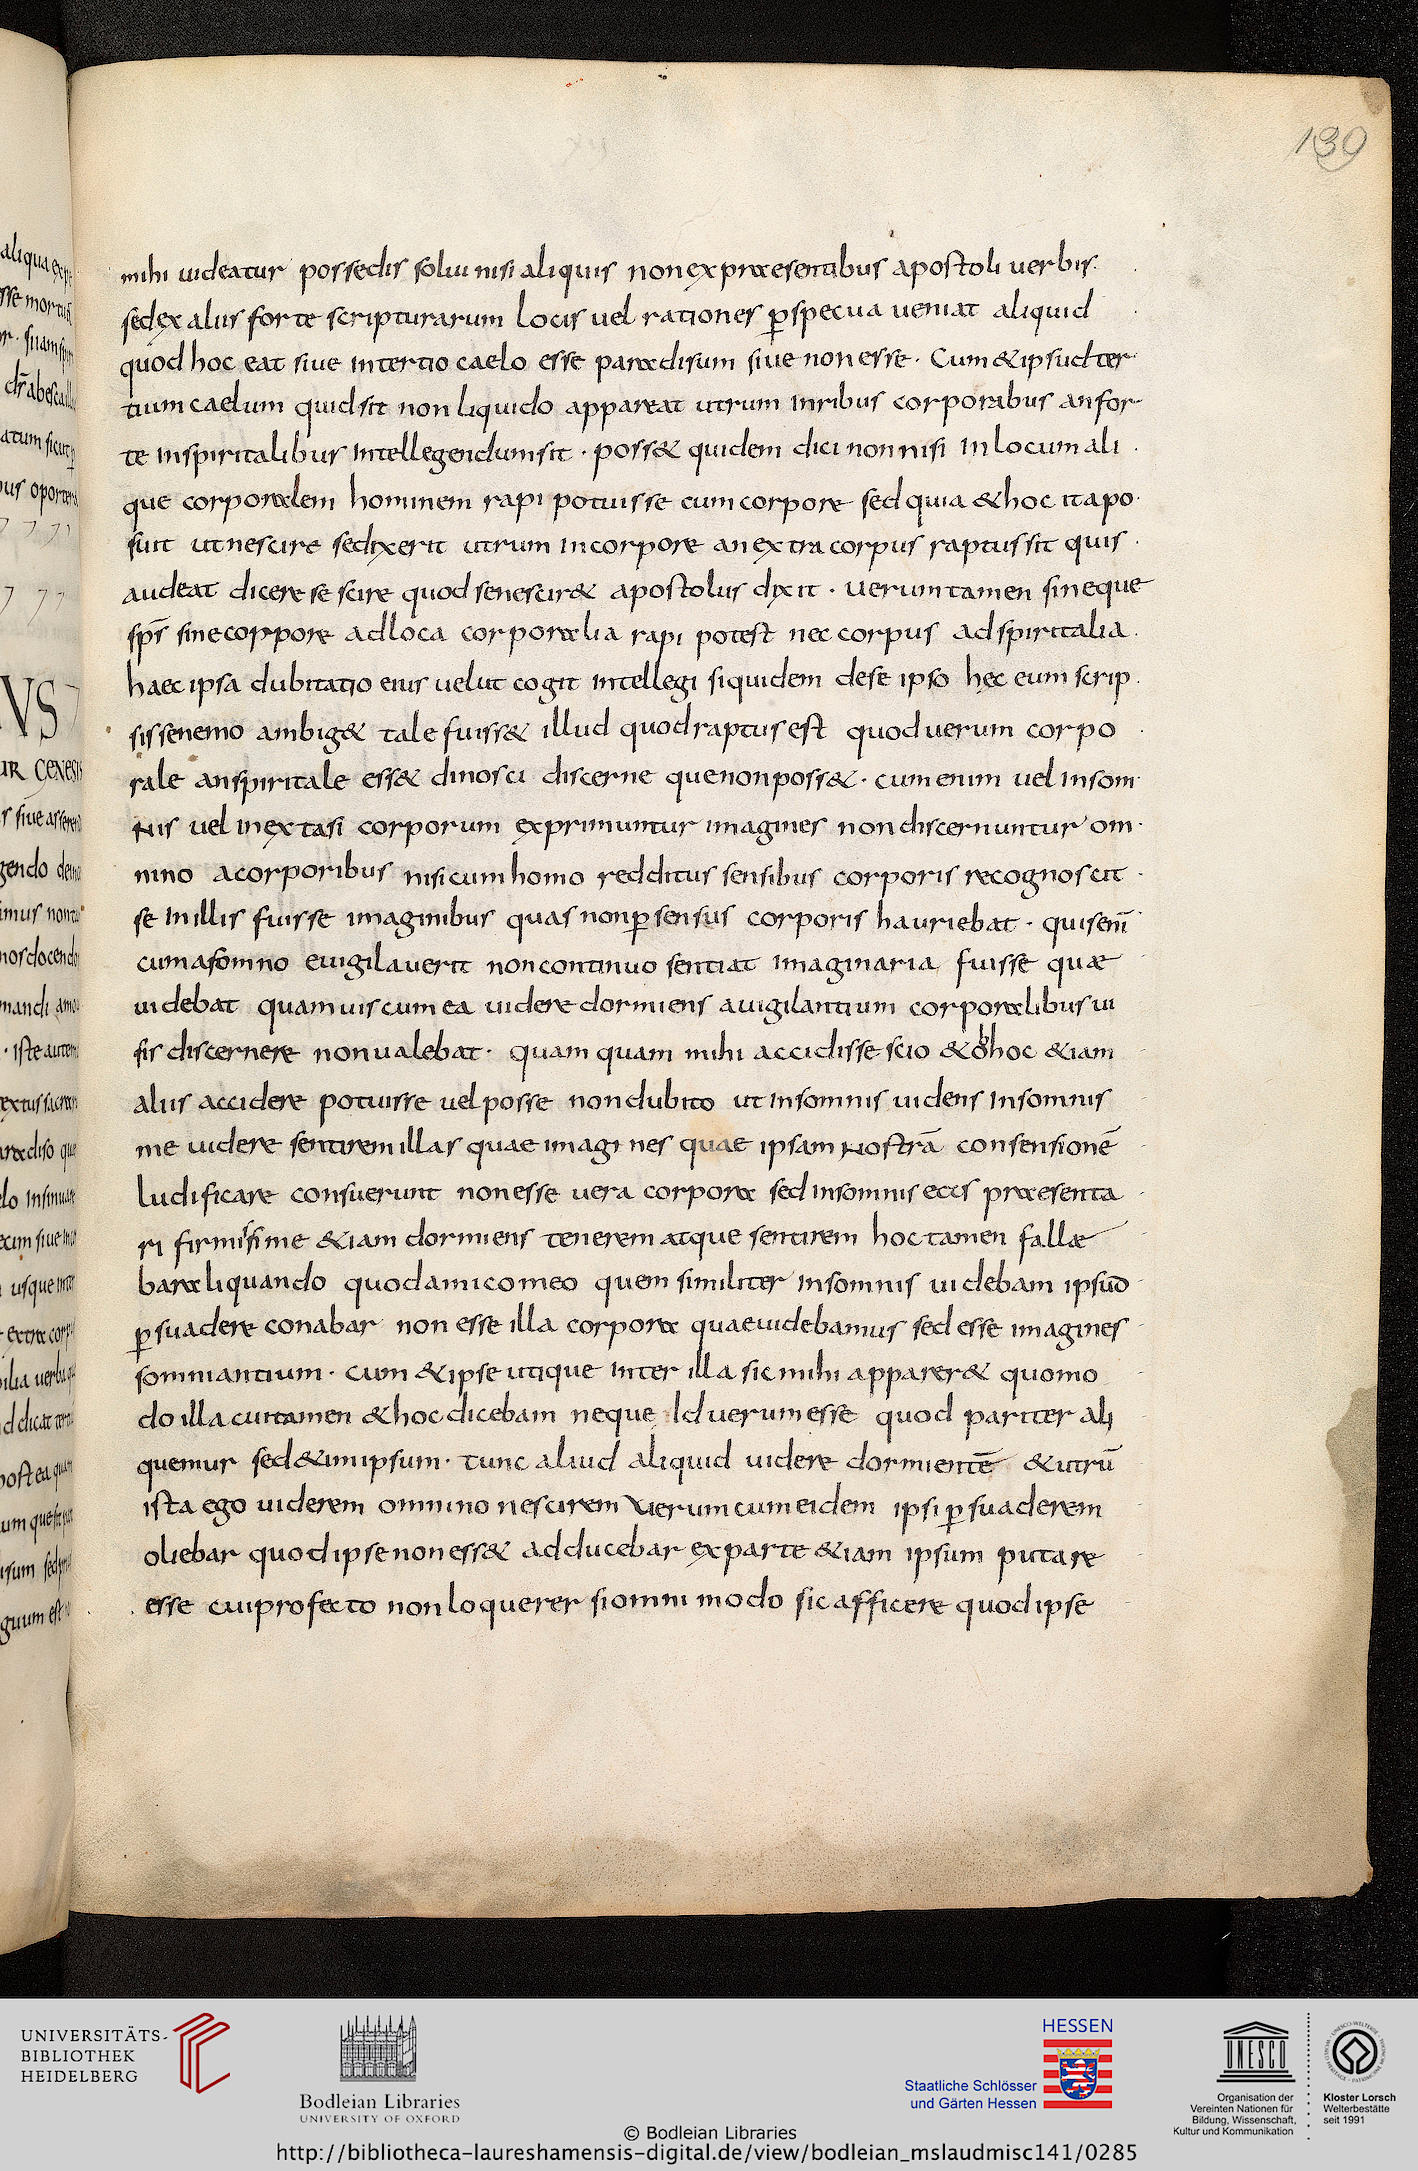 139
mihi uideatur possedis solui nisi aliquis non ex praesentibus apostoli uerbis.
sed ex aliis forte scripturarum locis uel rationes ꝑspecua ueniat aliquid
quod hoc eat siue in tertio caelo esse paradisum siue non esse. Cum & ipsud ter
tium caelum quid sit non liquido appareat utrum in ribus corporabus an for
te In spiritalibus Intellegendum sit. poss& quidem dici non nisi In locum ali
que corporalem hominem rapi potuisse cum corpore sed quia & hoc ita po
suit ut nescire se dixerit utrum In corpore an extra corpus raptus sit quis
audeat dicere se scire quod se nescir& apostolus dixit. uerum tamen si neque
sp̄s sine corpore ad loca corporalia rapi potest nec corpus ad spiritalia.
haec ipsa dubitatio eius uelut cogit Intellegi siquidem de se ipso hęc eum scrip
sisse nemo ambig& tale fuiss& illud quod raptus est quod uerum corpo
rale an spiritale ess& dinosci discerne que non poss&. cum enim uel In som
Nis uel in extasi corporum exprimuntur imagines non discernuntur om
nino a corporibus nisi cum homo redditus sensibus corporis recognoscit
se In illis fuisse imaginibus quas non ꝑ sensus corporis hauriebat. quis enī
cum a somno euigilauerit non continuo sentiat Imaginaria fuisse quae
uidebat quamuis cum ea uidere dormiens a uigilantium corporalibus ui
sis discernere non ualebat. quam quam mihi accidisse scio & obhoc &iam
aliis accidere potuisse uel posse non dubito ut In somnis uidens In somnis
me uidere sentirem illas quae imagi nes quae ipsam Nostrā consensionē
ludificare consuerunt non esse uera corpora sed In somnis ecis praesenta
ri firmissime &iam dormiens tenerem atque sentirem hoc tamen fallae
bar aliquando quod amico meo quem similiter In somnis uidebam ipsuo
ꝑsuadere conabar non esse illa corpora quae uidebamus sed esse imagines
somniantium. cum & ipse utique Inter illa sic mihi apparer& quomo
do illa cui tamen & hoc dicebam neque Id uerum esse quod pariter ali
quemur sed & imipsum. tunc aliud aliquid uidere dormientē & utrū
ista ego uiderem omnino nescirem Verum cum eidem ipsi ꝑsuaderem
oliebar quod ipse non ess& adducebar ex parte &iam ipsum putare
esse cui profecto non loquerer si omni modo sic afficere quod ipse
UNIVERSITÄTS-
BIBLIOTHEK
HEIDELBERG
Bodleian Libraries
UNIVERSITY OF OXFORD
© Bodleian Libraries
HESSEN
Staatliche Schlösser
und Gärten Hessen
UNESCO
Organisation der
Vereinten Nationen für
Bildung, Wissenschaft,
Kultur und Kommunikation
Kloster Lorsch
Welterbestätte
seit 1991
http://bibliotheca-laureshamensis-digital.de/view/bodleian_mslaudmisc141/0285